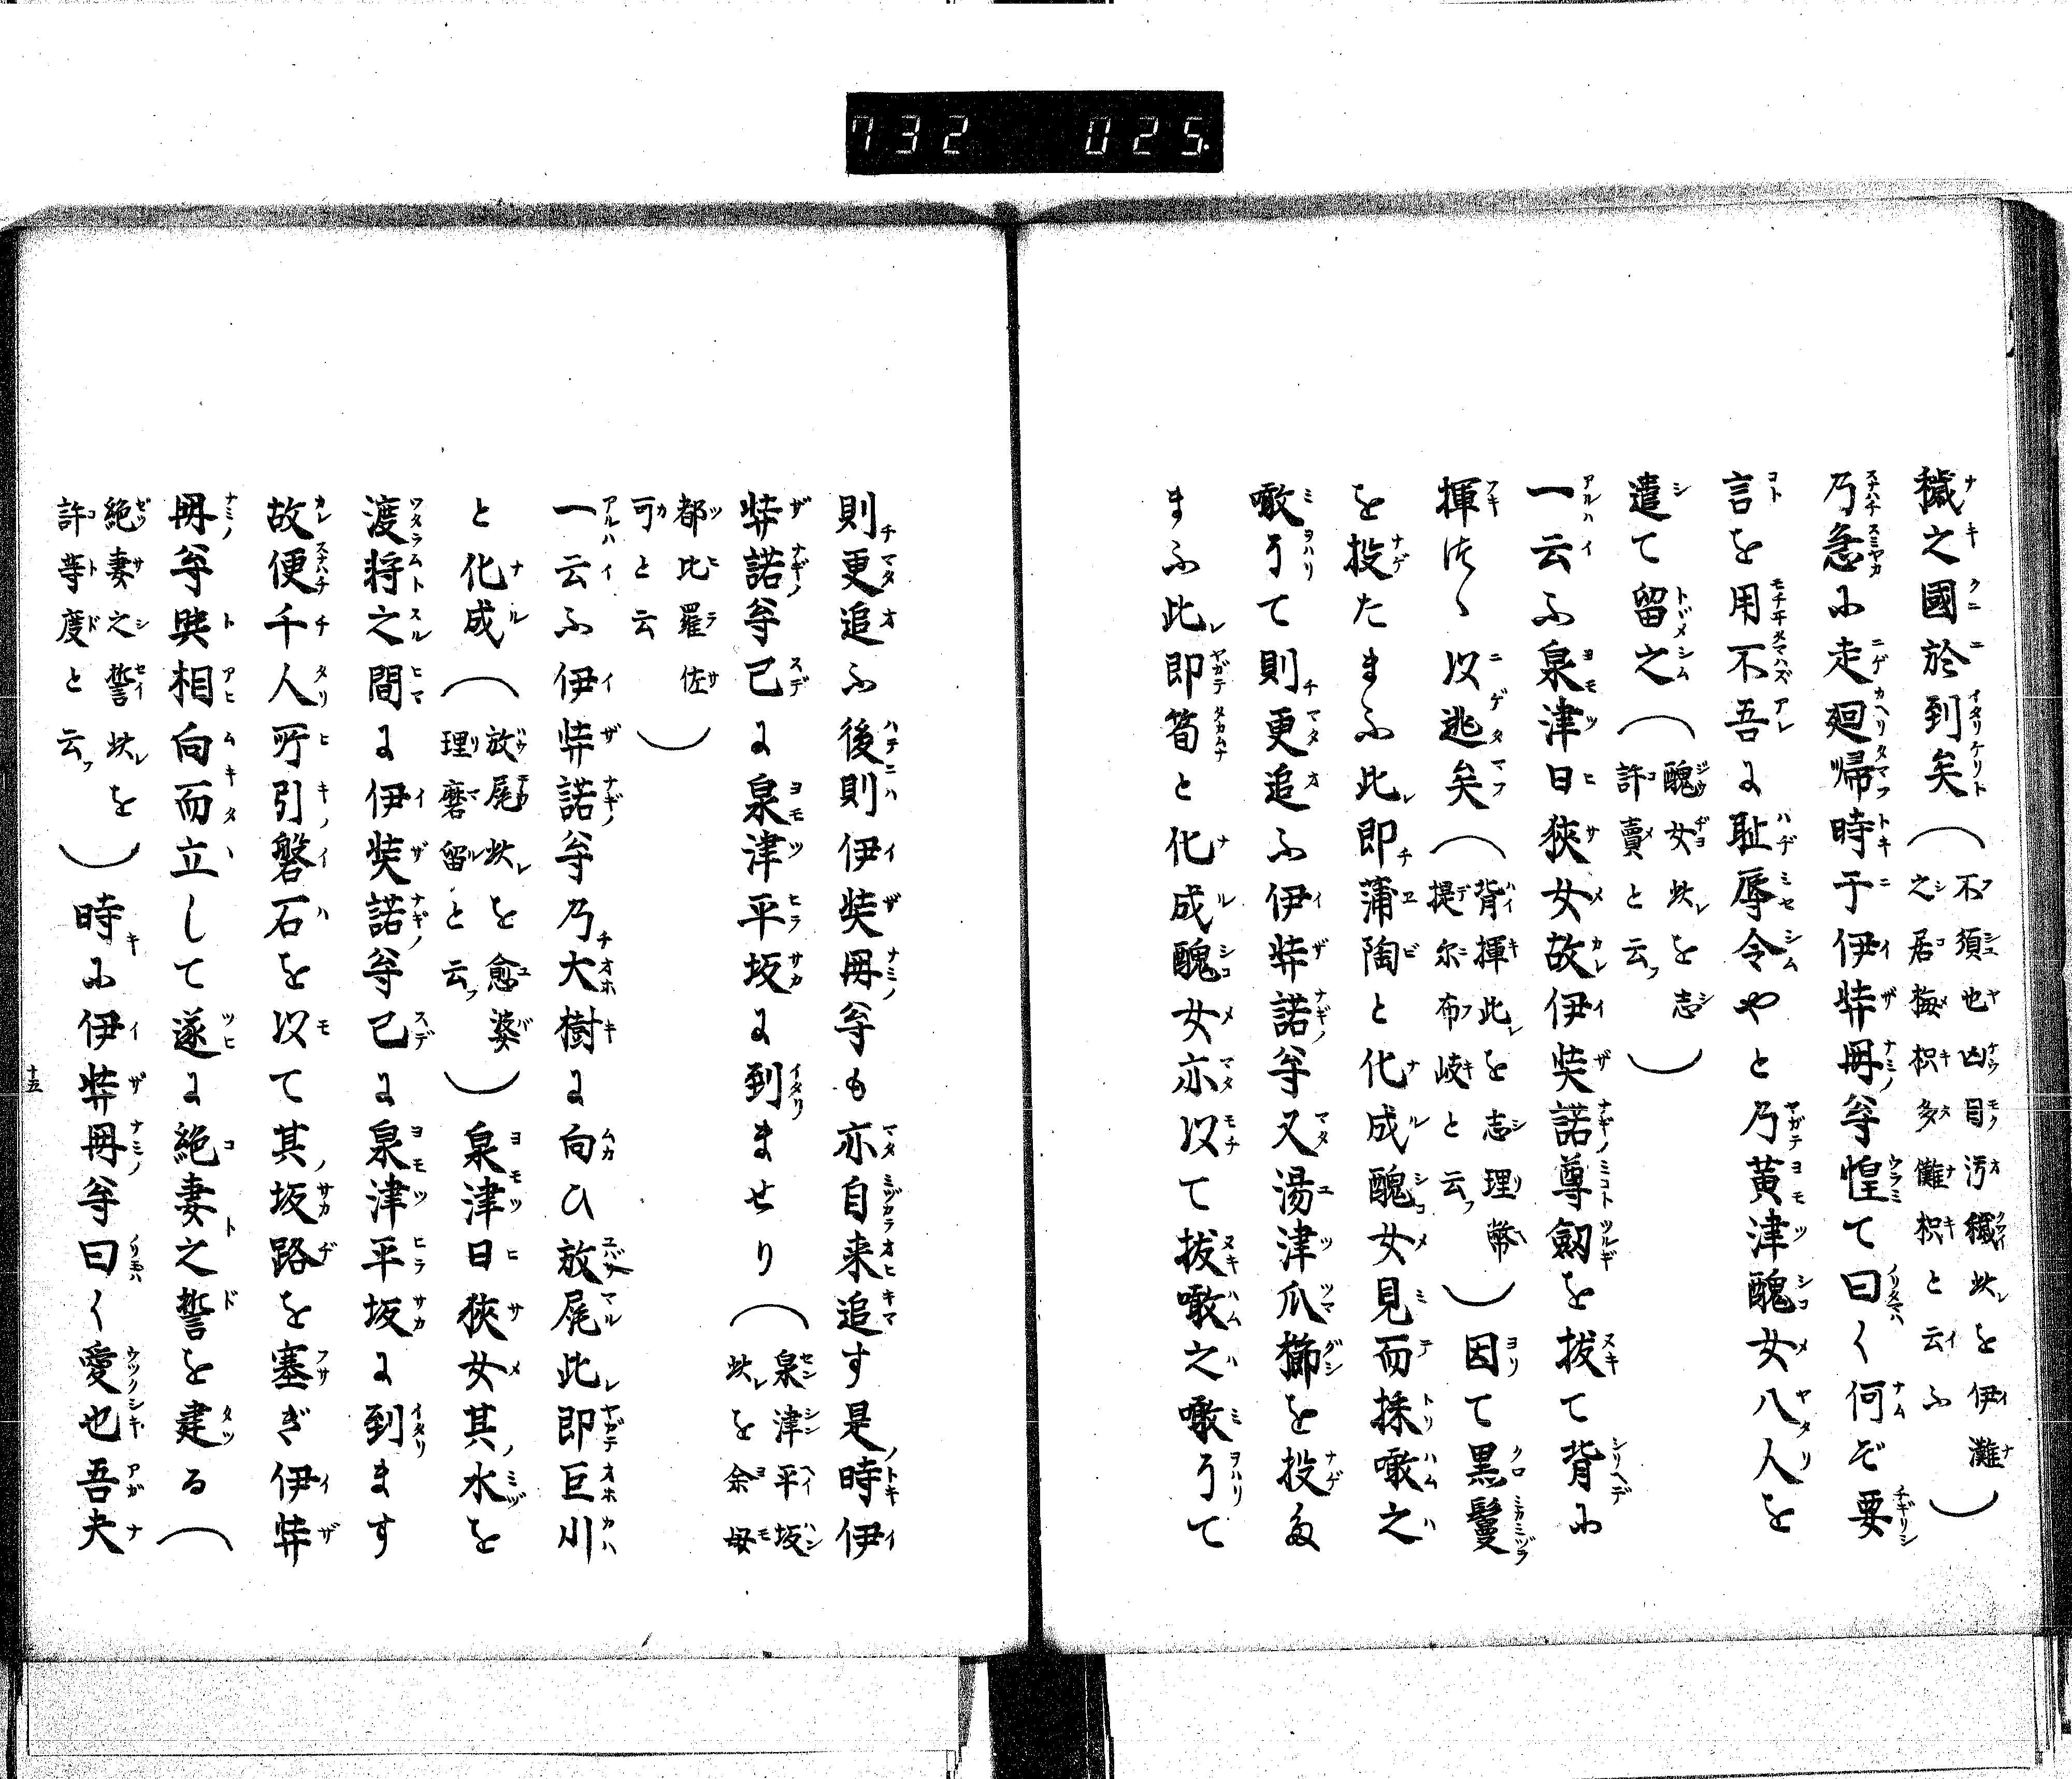 732 025.
穢之國於到矣（不須也凶目汚穢此を伊灘
之居梅枳多儺枳と云ふ）
乃急に走廻帰時于伊弉冊尊惶て曰く何ぞ要
言を用不吾に恥辱令やと乃黄津醜女八人を
遣て留之（醜女此を志
許賣と云）
一云ふ泉津日狹女故伊弉諾尊劔を抜て背に
揮つゝ以逃矣（背揮此を志理幣
提尓布岐と云）因て黒鬘
を投たまふ此即蒲陶と化成醜女見而採噉之
噉了て則更追ふ伊弉諾尊又湯津爪櫛を投た
まふ此即筍と化成醜女亦以て抜噉之噉了て
則更追ふ後則伊弉冊尊も亦自来追す是時伊
弉諾尊已に泉津平坂に到ませり（泉津平坂
此を余母
都比羅佐
可と云）
一云ふ伊弉諾尊乃大樹に向ひ放尾此即巨川
と化成（放尾此を愈婆
理磨留と云）泉津日狹女其水を
渡将之間に伊弉諾尊已に泉津平坂に到ます
故便千人所引磐石を以て其坂路を塞ぎ伊弉
冊尊與相向而立して遂に絶妻之誓を建る（
絶妻之誓此を
許等度と云）時に伊弉冊尊曰く愛也吾夫
十五